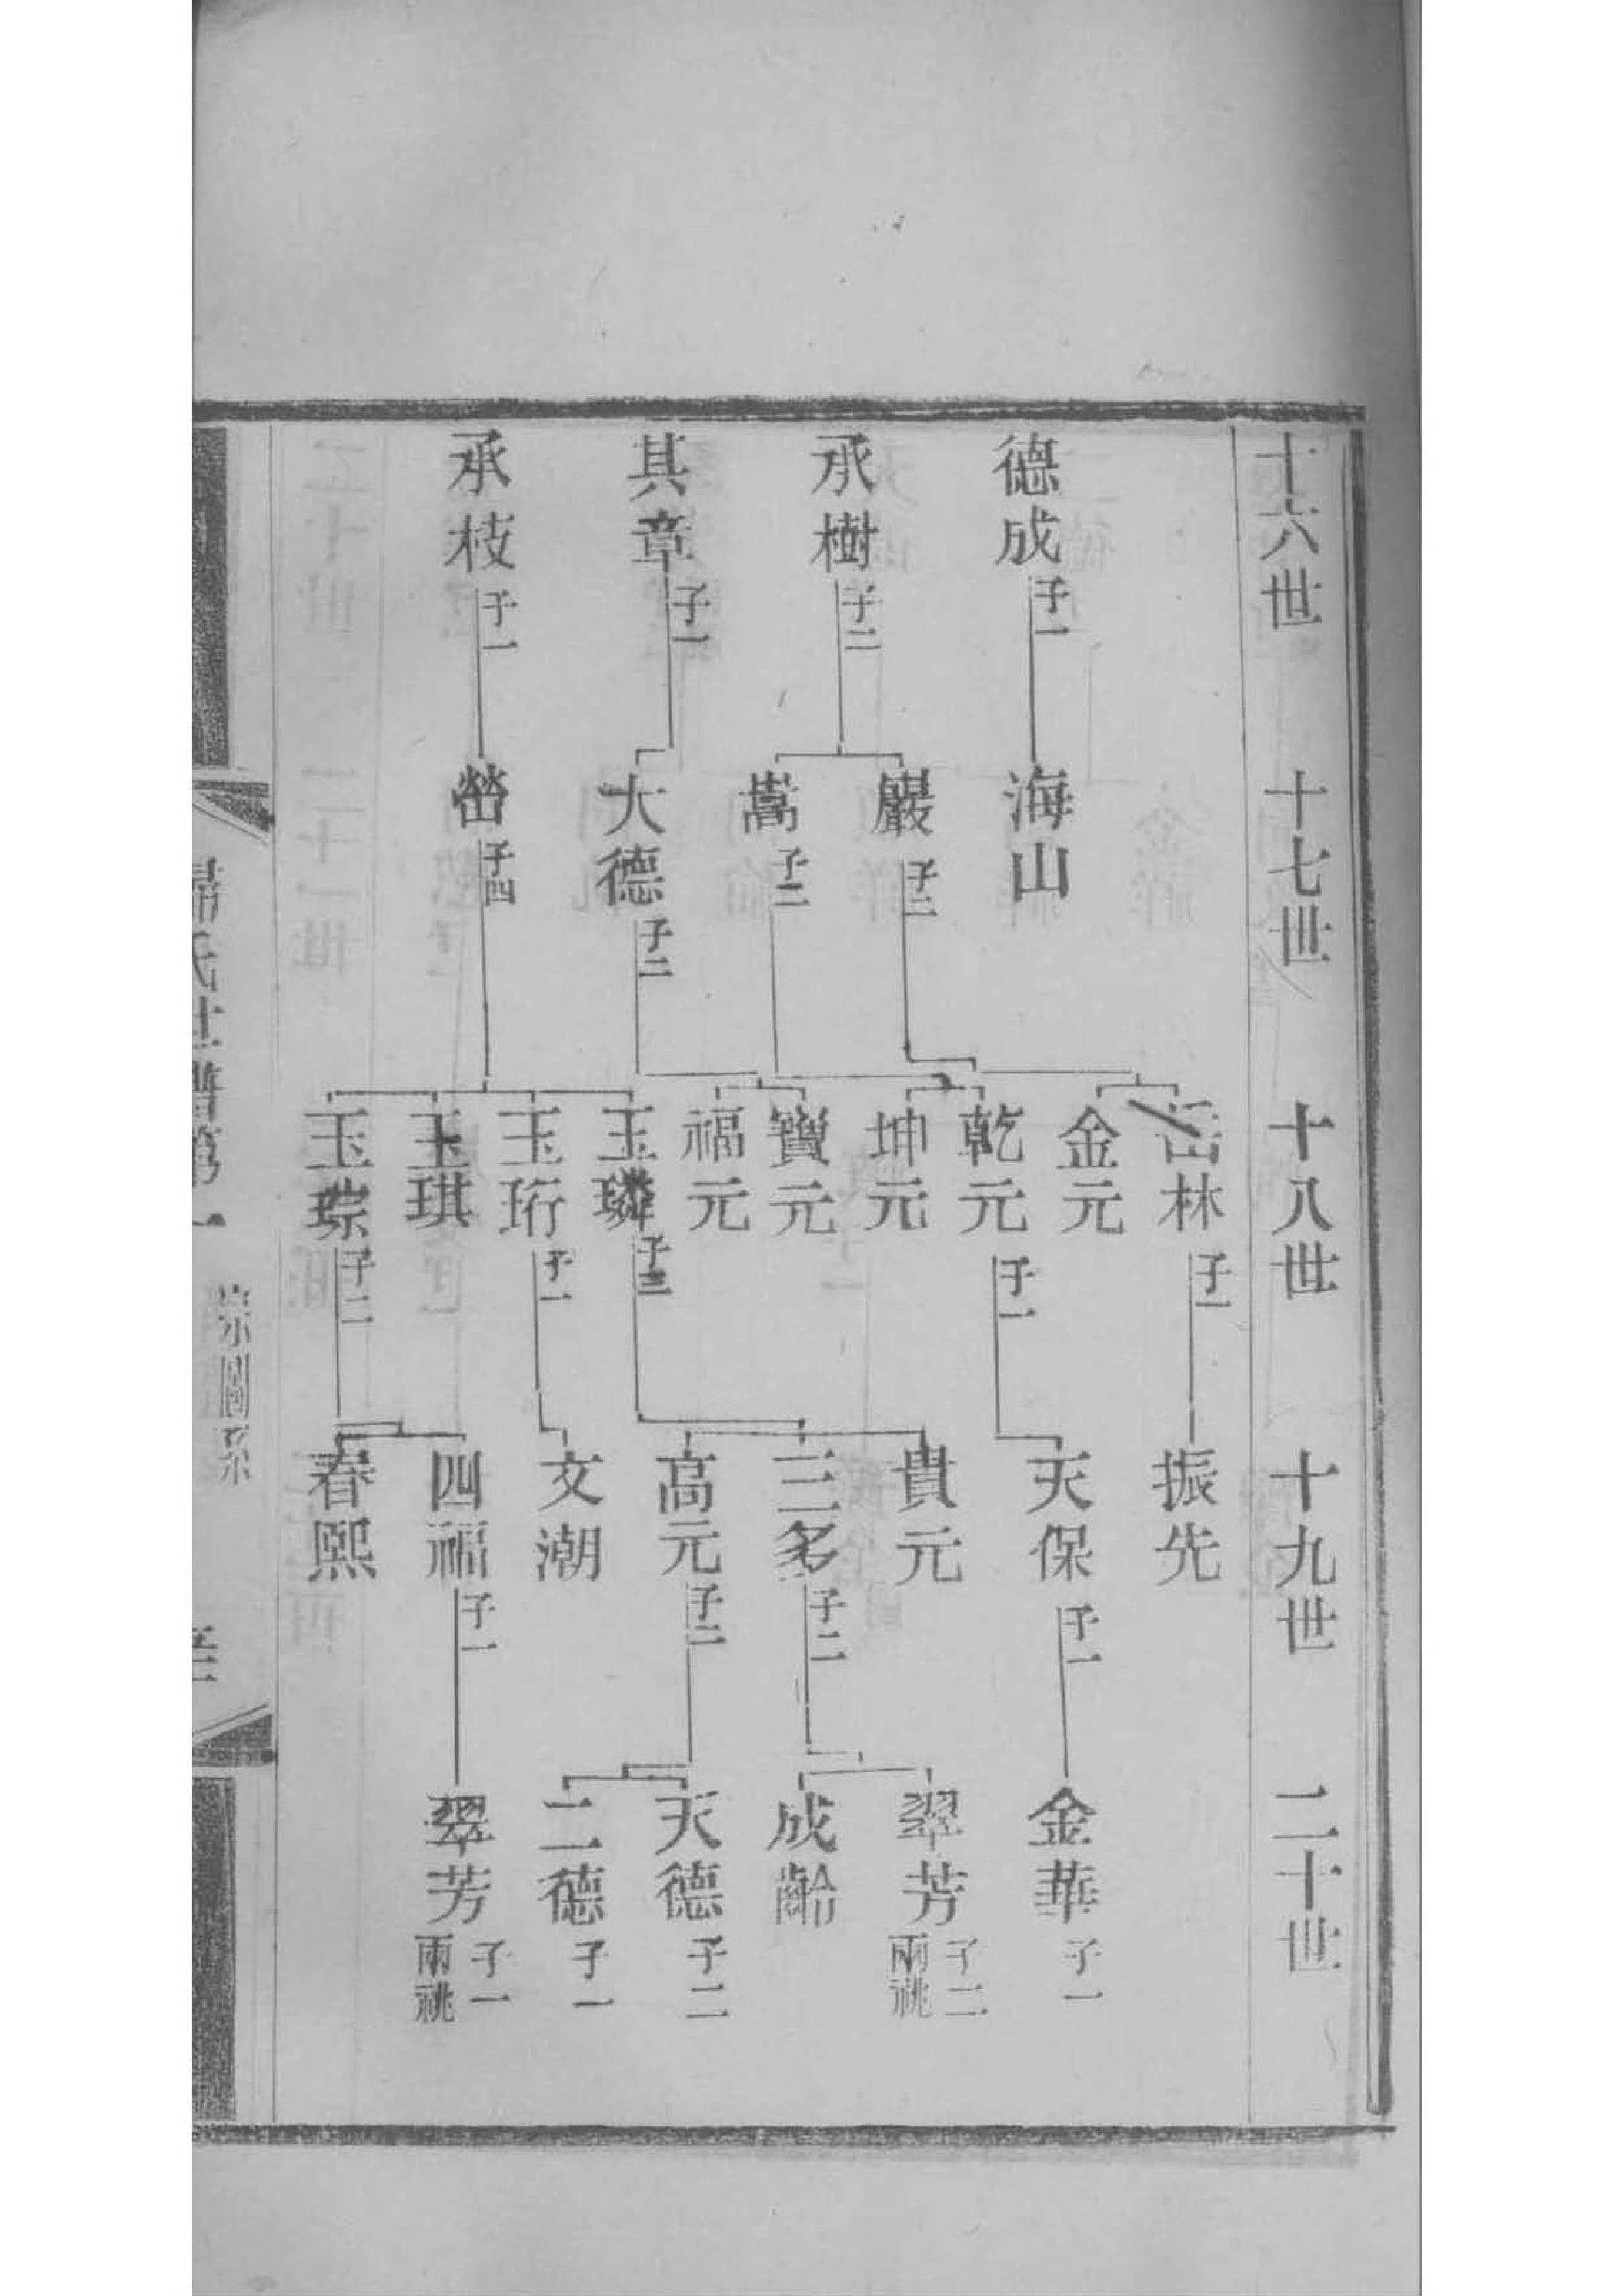 十六世
德成 子一
承樹 子二
其章 子一
承枝 子一
十七世
海山
巖 子二
嵩 子二
大德 子二
子四
十八世
林 子一
金元
乾元 子一
坤元
寶元
福元
玉璘 子三
玉珩 子一
玉琪
玉琮 子二
十九世
振先
天保 子一
貴元
三多 子二
高元 子二
文潮
四福 子一
春熙
二十世
金華 子一
翠芳 子二 兩祧
成齡
天德 子二
二德 子一
翠芳 子一 兩祧
氏世譜第一
宗圖系